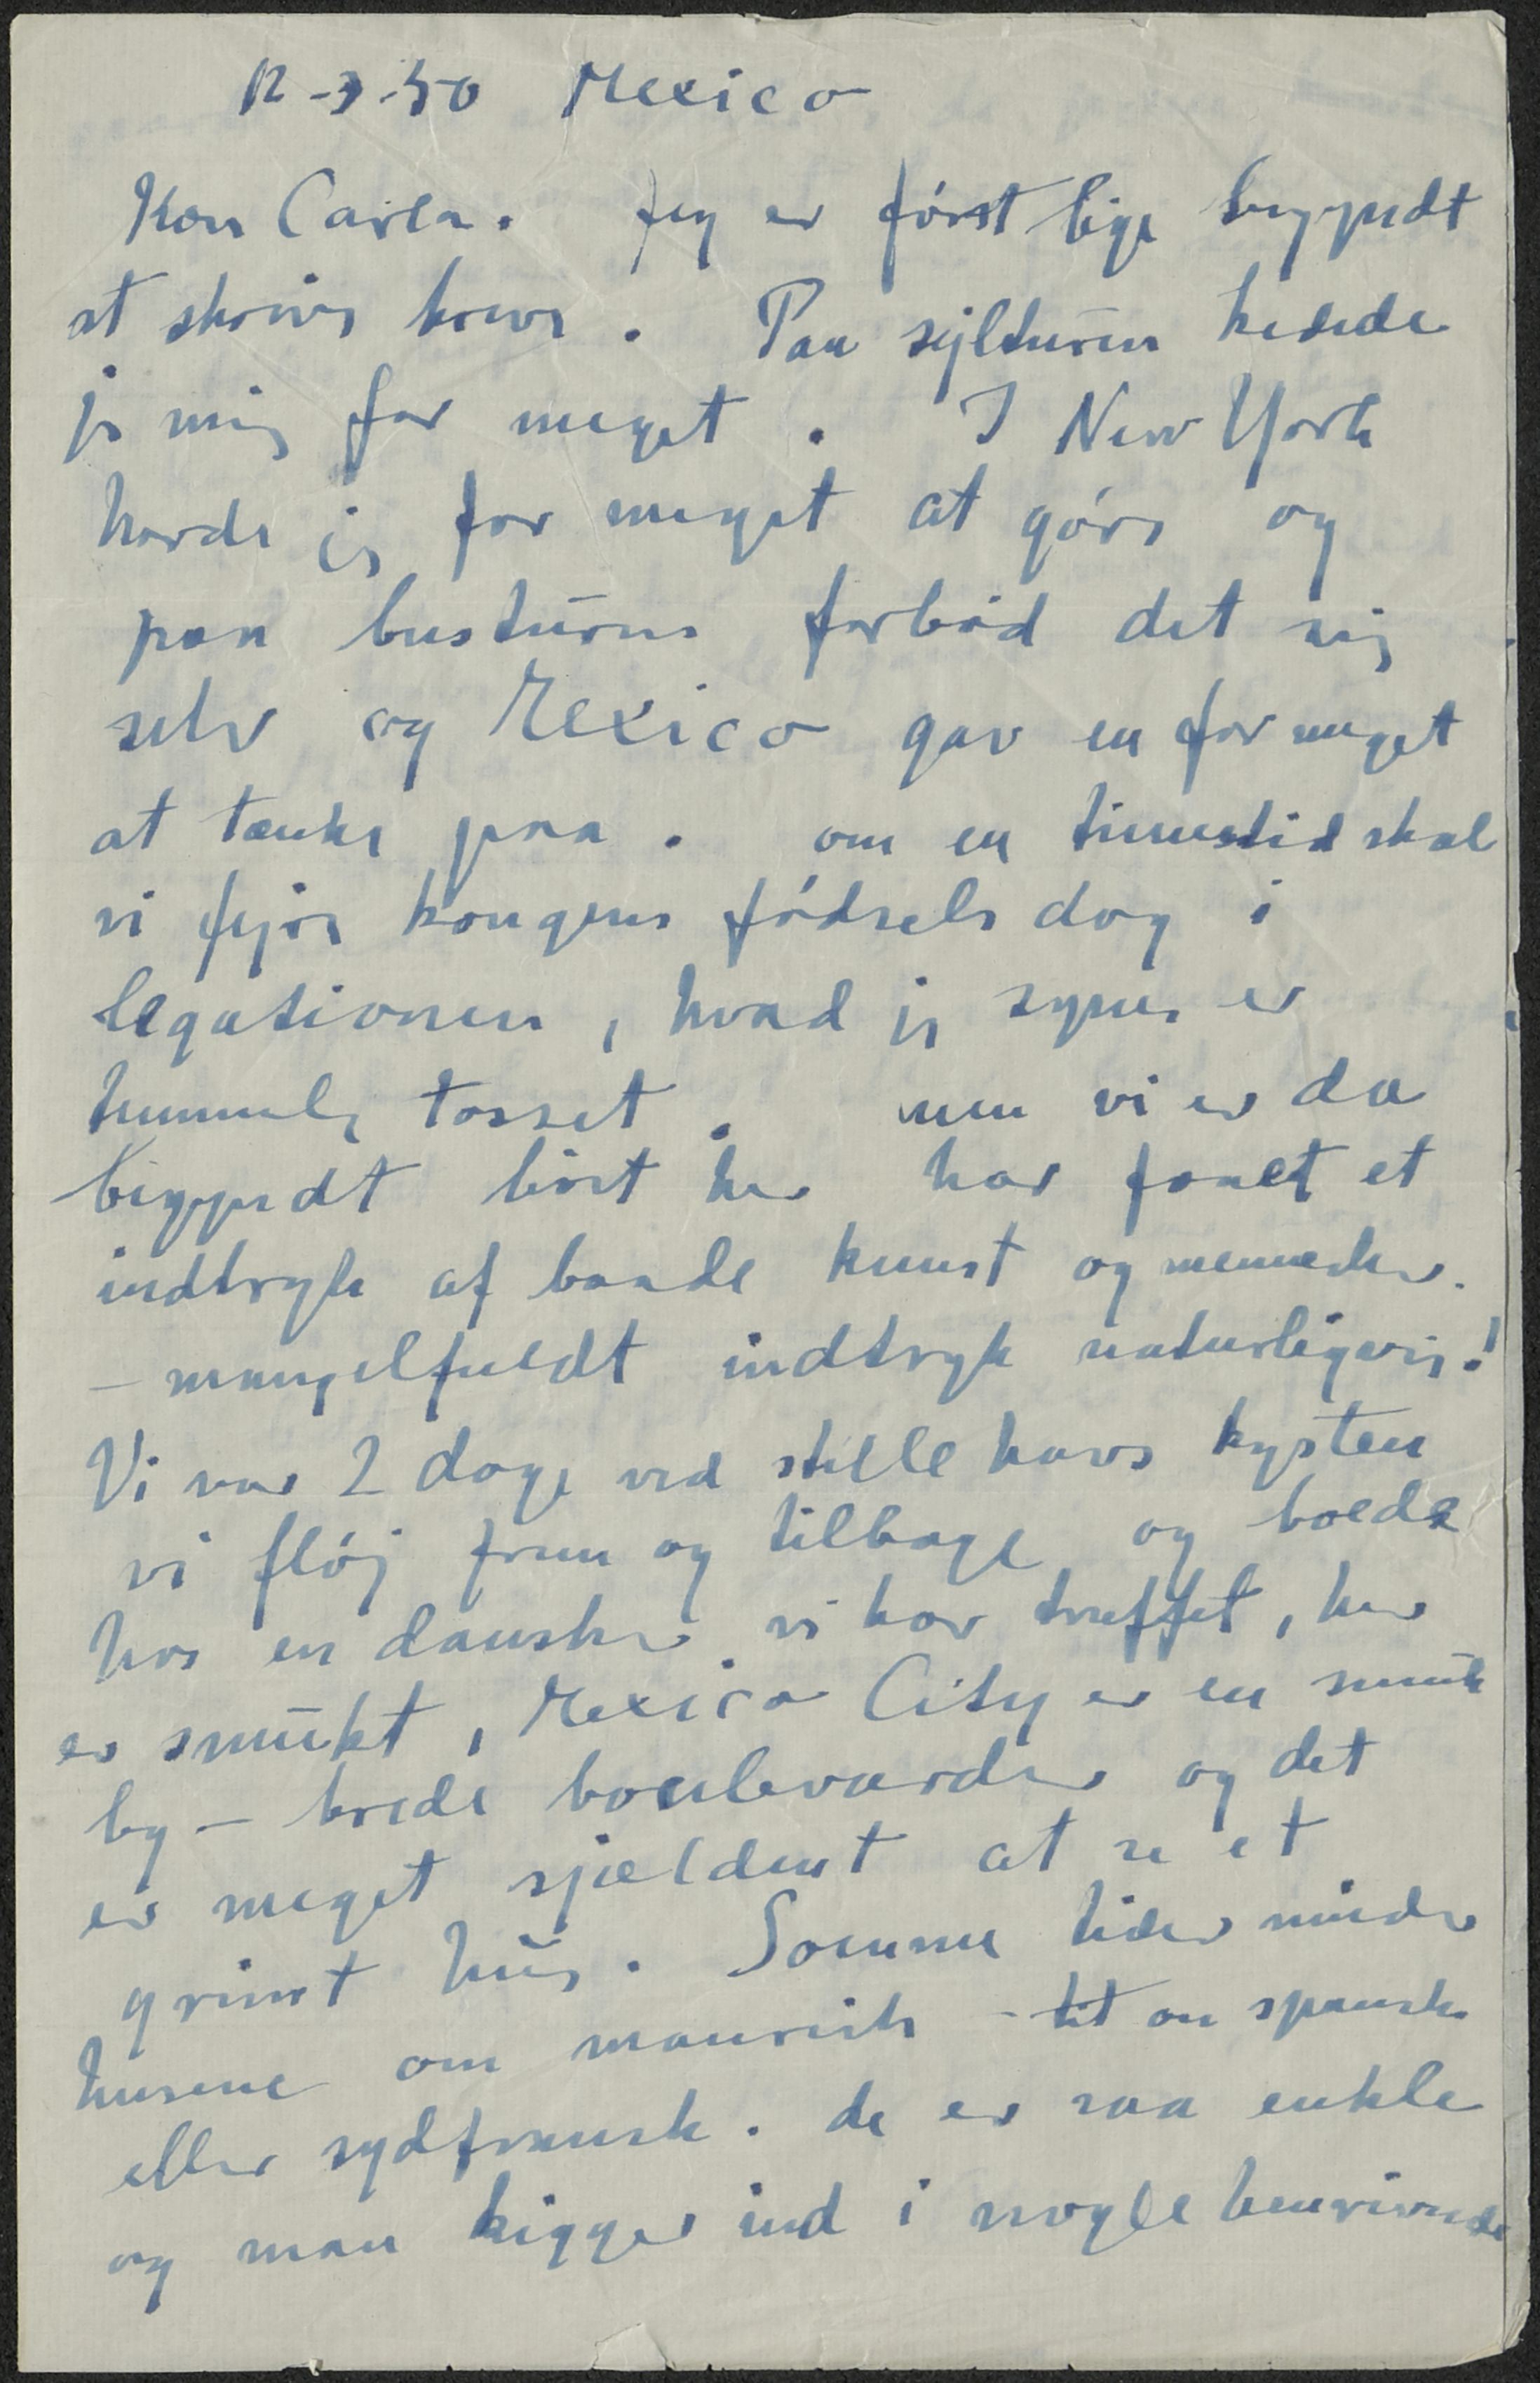 12-3-50 Mexico
Kære Carla. Jeg er først lige begyndt
at skrive breve. Paa sejlturen kedede
je mig for meget. I New York
havde je for meget at gøre og
paa busturene forbød det sig
selv og Mexico gav en for meget
at tænke paa. om en timestid skal
vi fejre kongens fødselsdag i
legationen, hvad je synes er
himmelig tosset. men vi er da
begyndt livet her har faaet et
indtryk af baade kunst og mennesker.
– mangelfuldt indtryk naturligvis!
Vi var 2 dage ved stillehavs kysten
vi fløj frem og tilbage og boede
hos en dansker vi har truffet, her
er smukt, Mexico City er en smuk
by – brede boulevarder og det
er meget sjældent at se et
grimt hus. Somme tider minder
husene om maurisk – tit om spansk
eller sydfransk. de er saa enkle
og man kigger ind i nogle henrivende